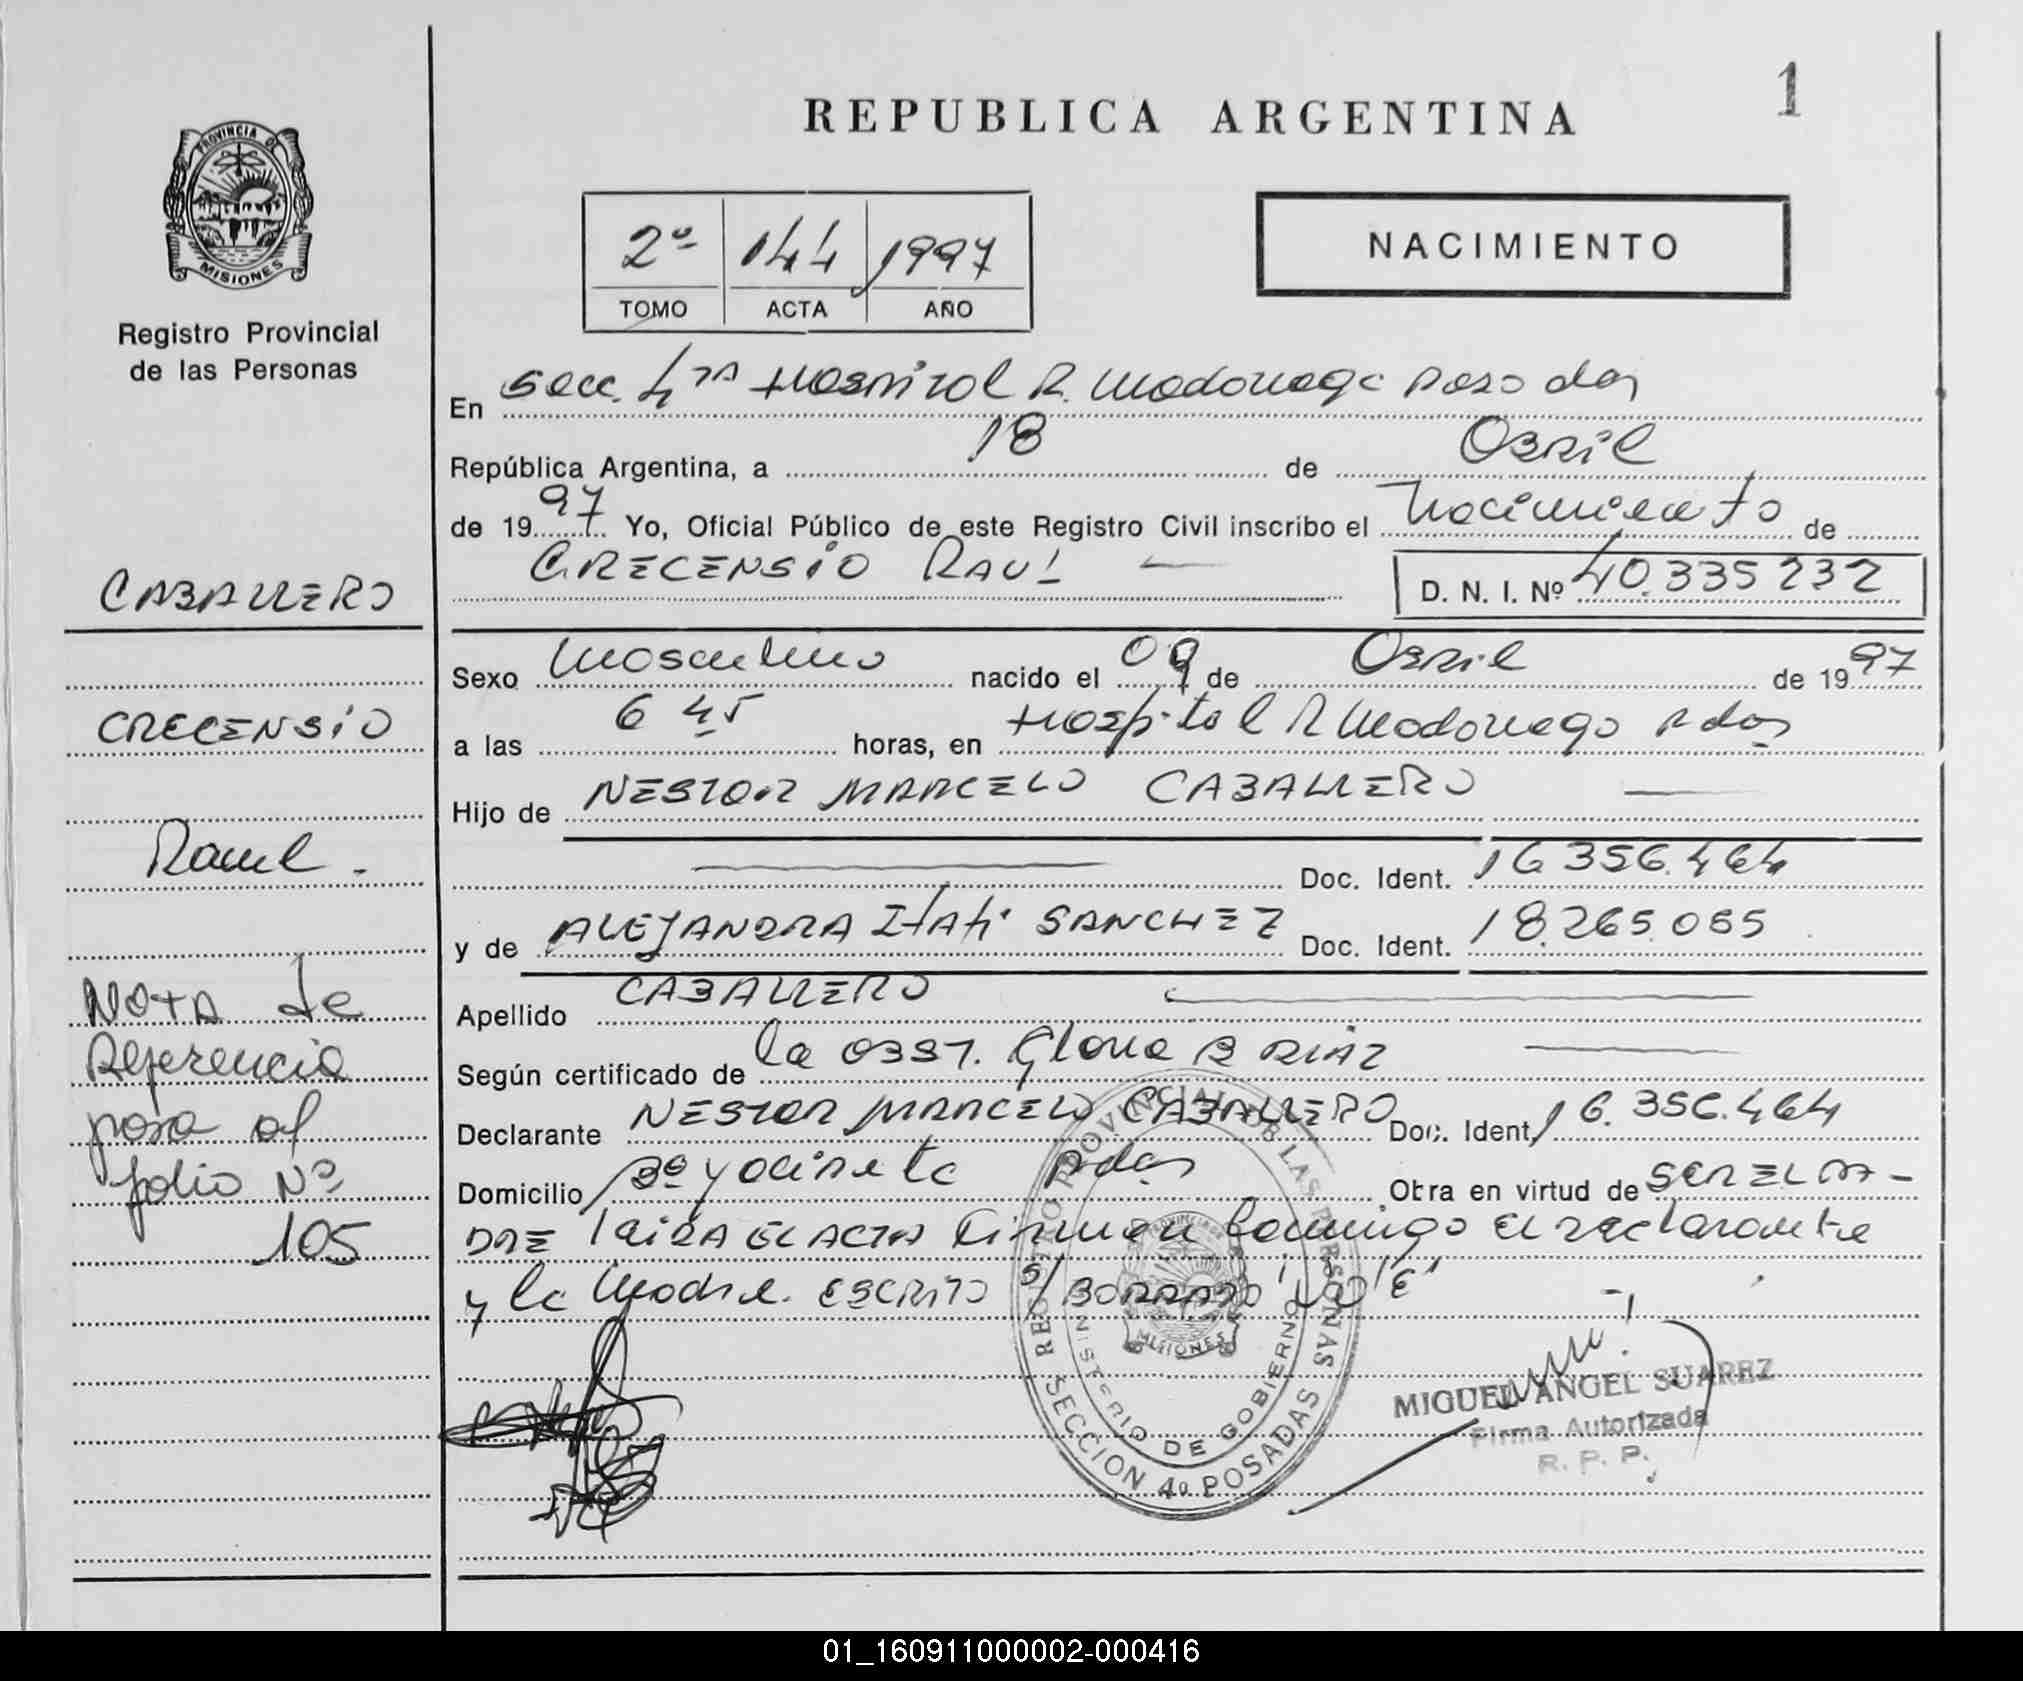 REPUBLICA ARGENTINA
1
PROVINCIA DE
MISIONES
Registro Provincial
de las Personas
2º 144 1997
TOMO ACTA AÑO
NACIMIENTO
En Secc. 4ta Hospital R. Madariaga Posadas
República Argentina, a 18 de Abril
de 1997 Yo, Oficial Público de este Registro Civil inscribo el Nacimiento de
CRECENSIO RAUL
D. N. I. Nº 40.335232
CABALLERO
CRECENSIO
Raul.
NOTA de
Referencia
pasa al
folio Nº
105
Sexo Masculino nacido el 09 de Abril de 1997
a las 6 45 horas, en Hospital R Madariaga Pdas
Hijo de NESTOR MARCELO CABALLERO
Doc. Ident. 16.356.464
y de ALEJANDRA Itatí SANCHEZ Doc. Ident. 18.265.085
Apellido CABALLERO
Según certificado de la OBST. Gloria B DIAZ
Declarante NESTOR MARCELO CABALLERO Doc. Ident. 16.356.464
Domicilio Bº yacireta Pdas Obra en virtud de SER EL PA-
DRE leida EL ACTA Firman conmigo el declarante
y la Madre. ESCRITO S/ BORRADO
REGISTRO PROVINCIAL DE LAS PERSONAS
MINISTERIO DE GOBIERNO
SECCION 4º POSADAS
MISIONES
MIGUEL ANGEL SUAREZ
Firma Autorizada
R. P. P.
01_160911000002-000416